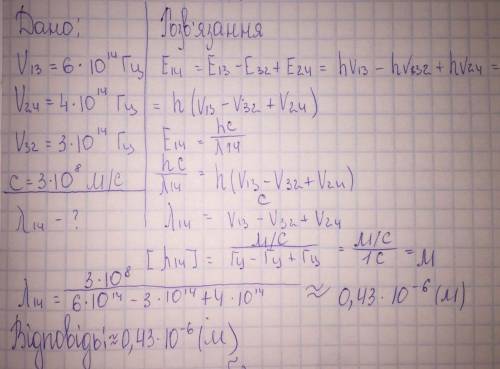 Дано:
V₁₃ = 6 · 10¹⁴ Гц
V₂₄ = 4 · 10¹⁴ Гц
V₃₂ = 3 · 10¹⁴ Гц
c = 3 · 10⁸ м/с
λ₁₄ - ?
Розв'язання
E₁₄ = E₁₃ - E₃₂ + E₂₄ = hV₁₃ - hV₃₂ + hV₂₄ =
= h (V₁₃ - V₃₂ + V₂₄)
E₁₄ = hc / λ₁₄
hc / λ₁₄ = h(V₁₃ - V₃₂ + V₂₄)
λ₁₄ = c / V₁₃ - V₃₂ + V₂₄
[λ₁₄] = м/с / Гц - Гц + Гц = м/с / 1с = м
λ₁₄ = 3 · 10⁸ / 6 · 10¹⁴ - 3 · 10¹⁴ + 4 · 10¹⁴ ≈ 0,43 · 10⁻⁶ (м)
Відповідь: ≈ 0,43 · 10⁻⁶ (м)